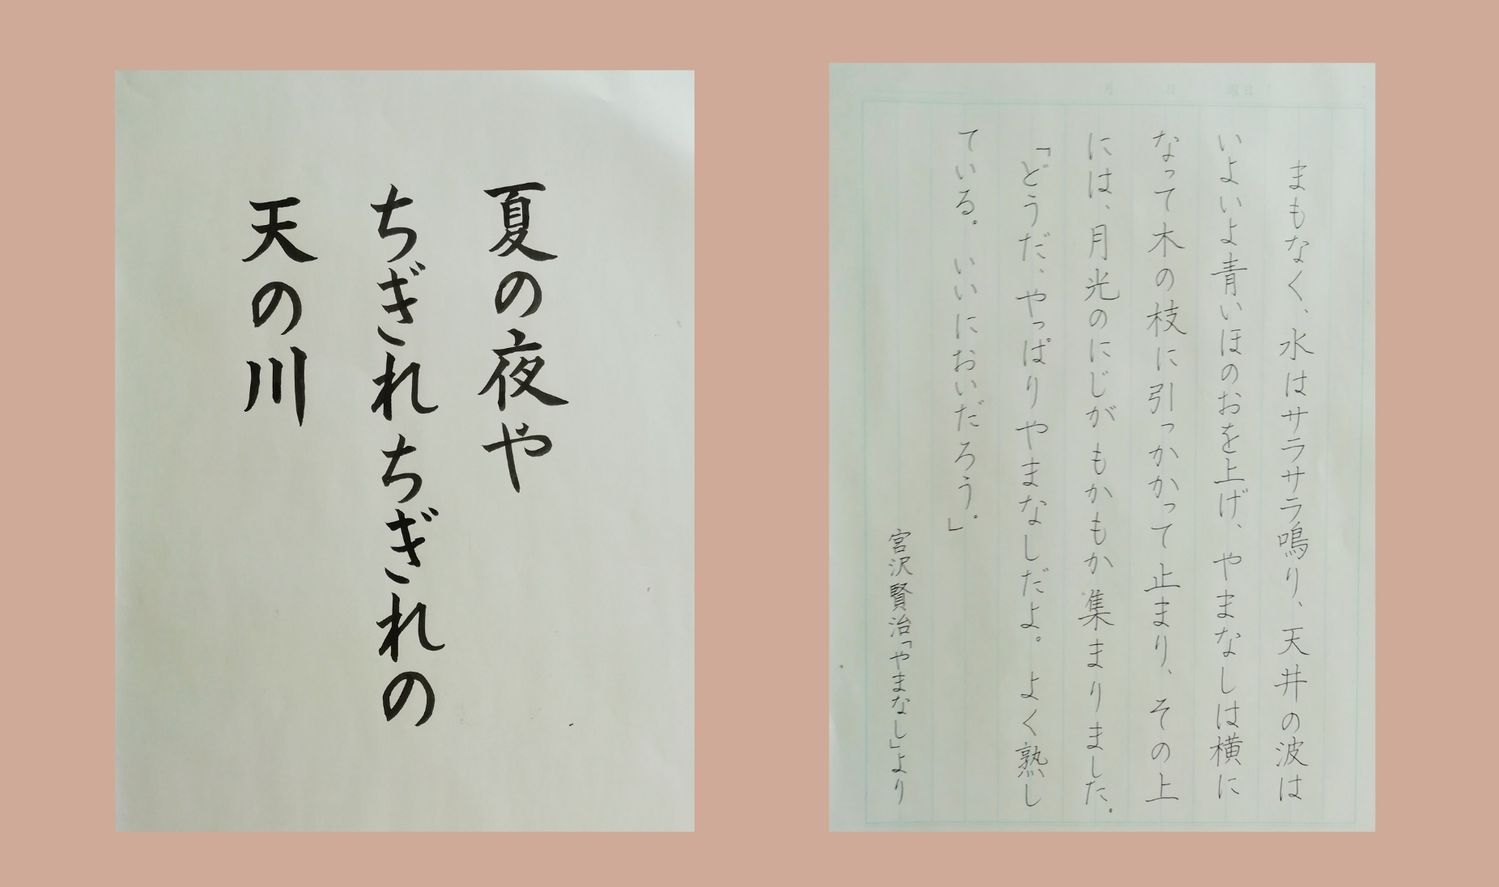 夏の夜や
ちぎれちぎれの
天の川
月 日 曜日
まもなく、水はサラサラ鳴り、天井の波は
いよいよ青いほのおを上げ、やまなしは横に
なって木の枝に引っかかって止まり、その上
には、月光のにじがもかもか集まりました。
「どうだ、やっぱりやまなしだよ。よく熟し
ている。いいにおいだろう。」
宮沢賢治「やまなし」より